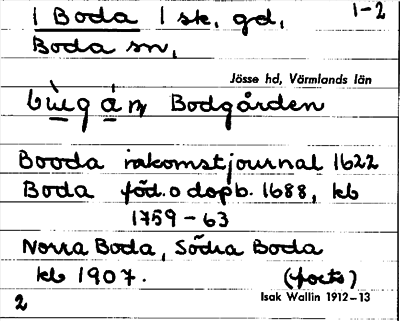 1 Boda 1 sk, gd, 1-2
Boda sn,
Jösse hd, Värmlands län
Bodgården
Booda inkomstjournal 1622
Boda föd. o dopb. 1688, kb
1759-63
Norra Boda, Södra Boda
kb 1907. (forts)
Isak Wallin 1912-13
2